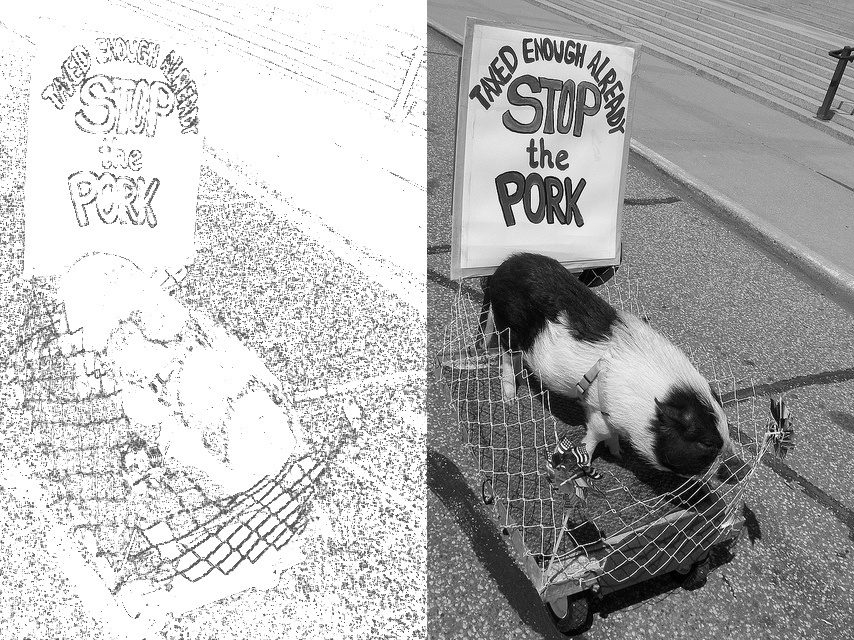 TAXED ENOUGH ALREADY
STOP
the
PORK
TAXED ENOUGH ALREADY
STOP
the
PORK